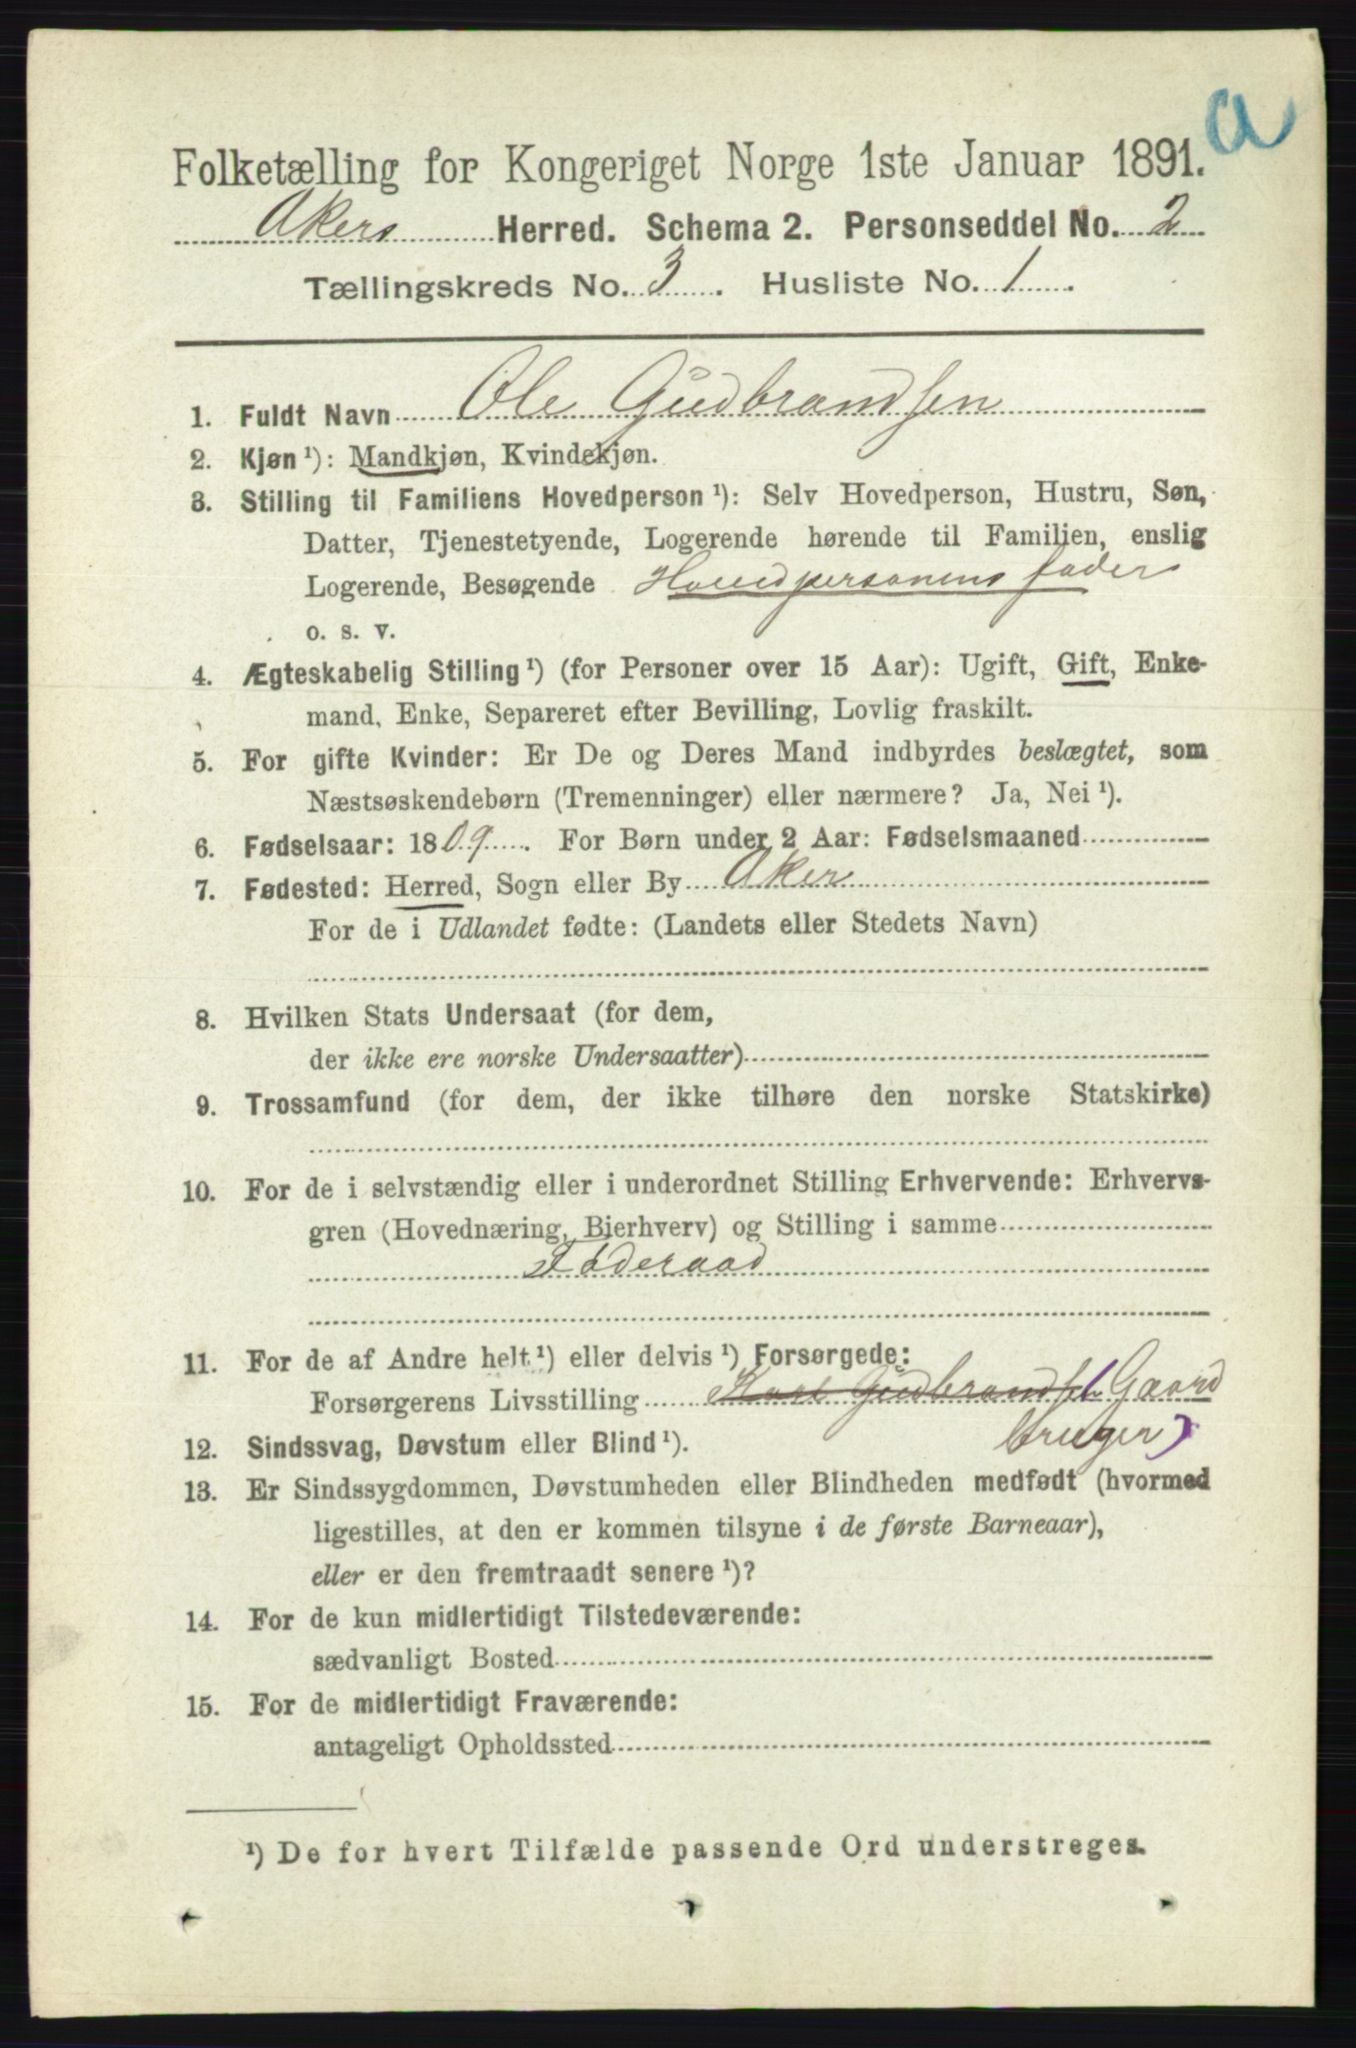 a
Folketælling for Kongeriget Norge 1ste Januar 1891.
Akers Herred. Schema 2. Personseddel No. 2
Tællingskreds No. 3. Husliste No. 1.
1. Fuldt Navn Ole Gudbrandsen
2. Kjøn ¹): Mandkjøn, Kvindekjøn.
3. Stilling til Familiens Hovedperson ¹): Selv Hovedperson, Hustru, Søn,
Datter, Tjenestetyende, Logerende hørende til Familien, enslig
Logerende, Besøgende Hovedpersonens fader
o. s. v.
4. Ægteskabelig Stilling ¹) (for Personer over 15 Aar): Ugift, Gift, Enke-
mand, Enke, Separeret efter Bevilling, Lovlig fraskilt.
5. For gifte Kvinder: Er De og Deres Mand indbyrdes beslægtet, som
Næstsøskendebørn (Tremenninger) eller nærmere? Ja, Nei ¹).
6. Fødselsaar: 1809. For Børn under 2 Aar: Fødselsmaaned
7. Fødested: Herred, Sogn eller By Aker
For de i Udlandet fødte: (Landets eller Stedets Navn)
8. Hvilken Stats Undersaat (for dem,
der ikke ere norske Undersaatter)
9. Trossamfund (for dem, der ikke tilhøre den norske Statskirke)
10. For de i selvstændig eller i underordnet Stilling Erhvervende: Erhvervs-
gren (Hovednæring, Bierhverv) og Stilling i samme
Føderaad
11. For de af Andre helt ¹) eller delvis ¹) Forsørgede:
Forsørgerens Livsstilling Gudbrandsen Gaard
bruger)
12. Sindssvag, Døvstum eller Blind ¹).
13. Er Sindssygdommen, Døvstumheden eller Blindheden medfødt (hvormed
ligestilles, at den er kommen tilsyne i de første Barneaar),
eller er den fremtraadt senere ¹)?
14. For de kun midlertidigt Tilstedeværende:
sædvanligt Bosted
15. For de midlertidigt Fraværende:
antageligt Opholdssted
¹) De for hvert Tilfælde passende Ord understreges.